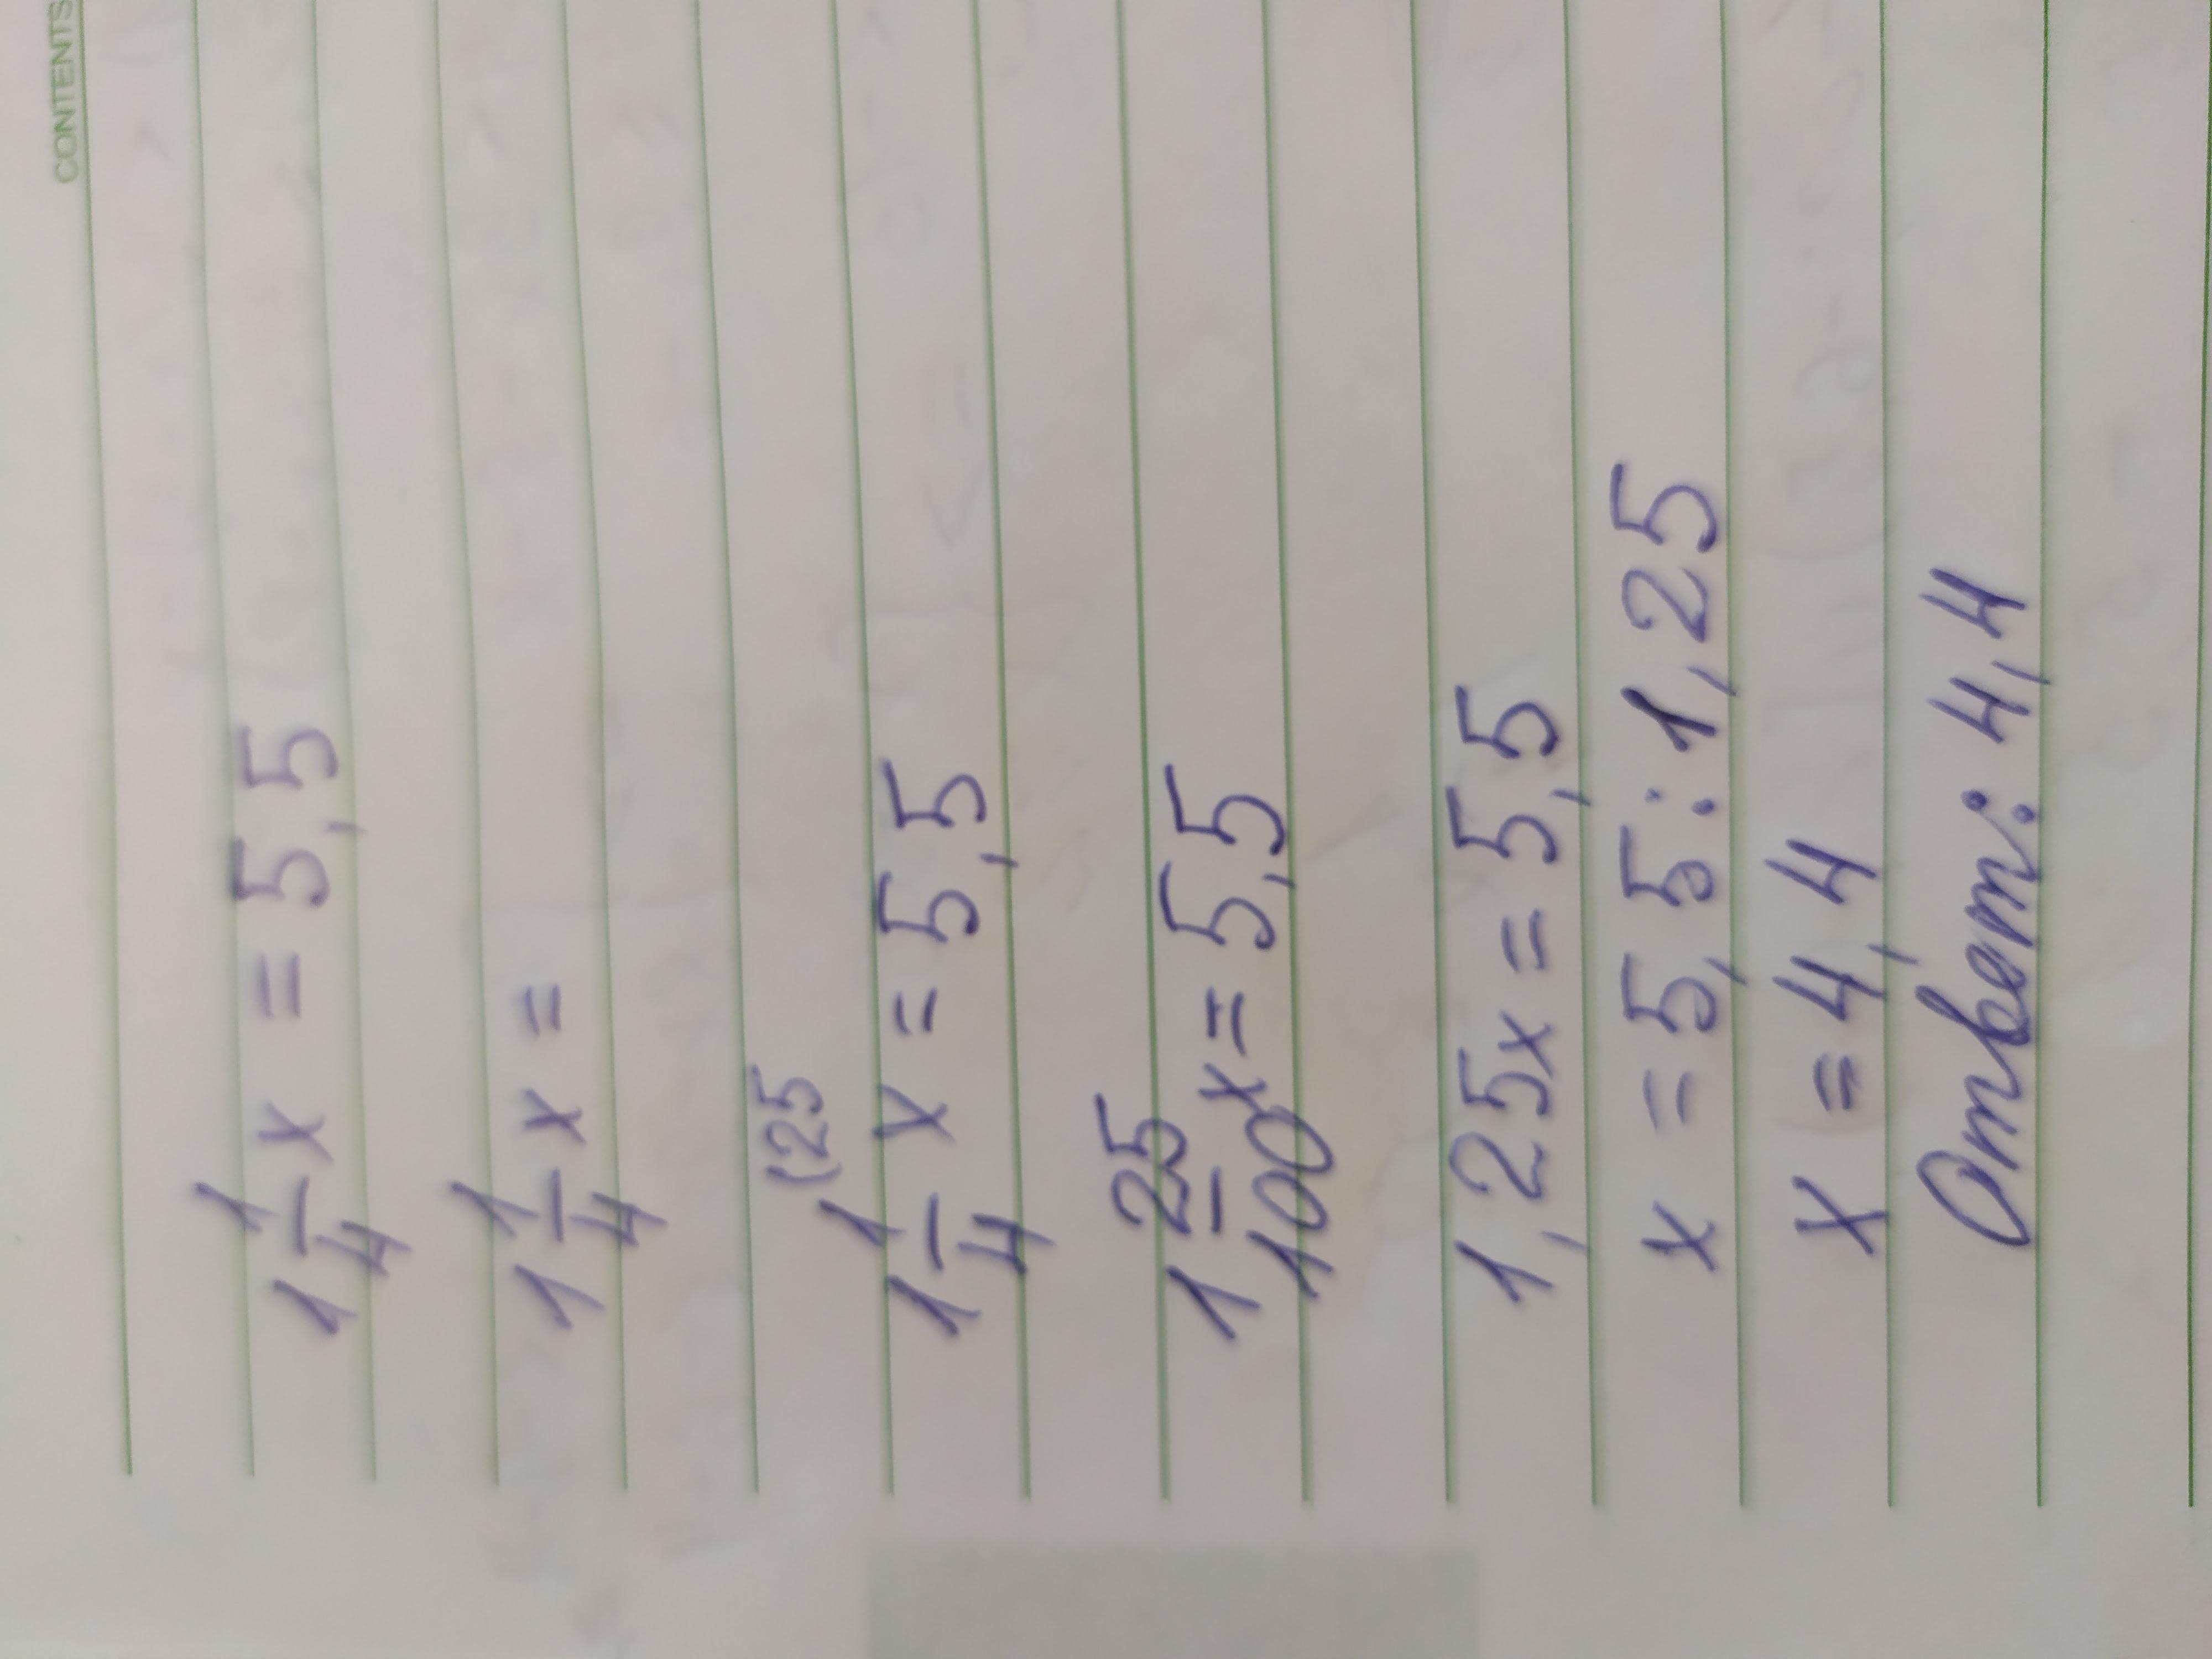 CONTENTS
1 1/4 x = 5,5
1 1/4 x =
(25
1 1/4 x = 5,5
1 25/100 x = 5,5
1,25x = 5,5
x = 5,5 : 1,25
x = 4,4
Ответ: 4,4